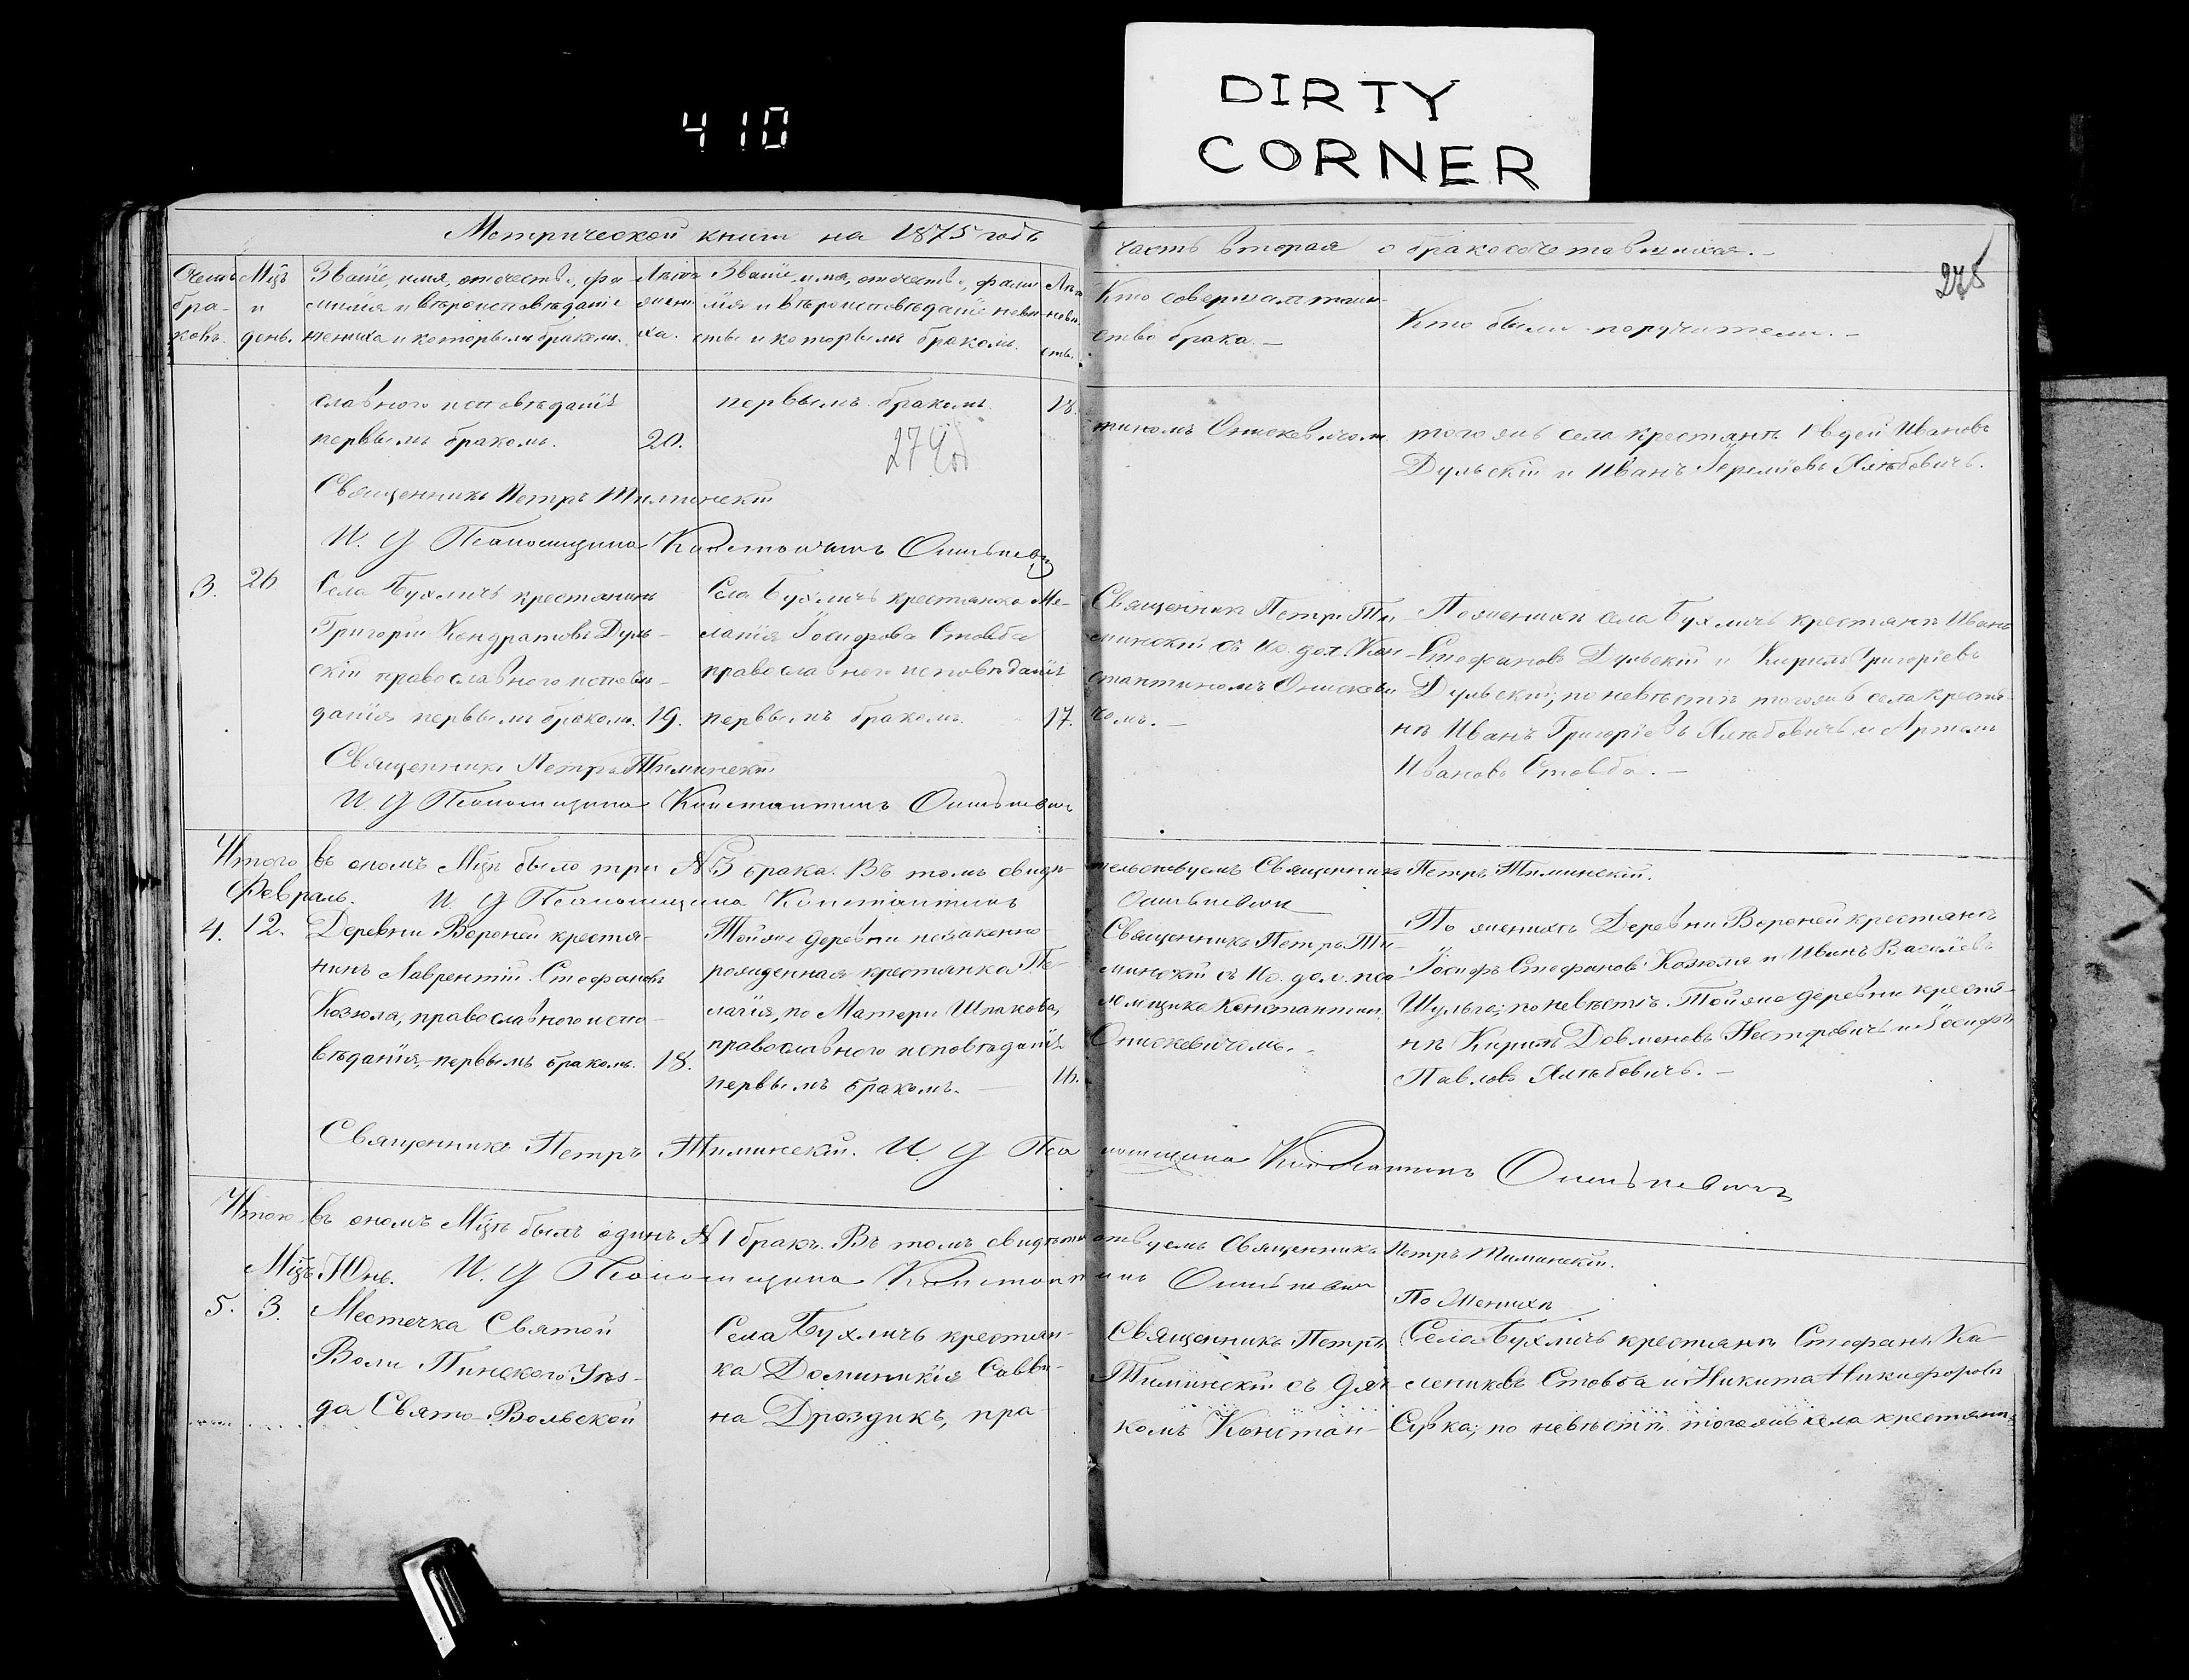 DIRTY
CORNER
410
Метрической книги на 1875 годъ
часть вторая о бракосочетавшихся.
275
Счетъ браковъ.
Мцъ и день.
Званіе, имя, отечество, фа
милія и вѣроисповѣданіе
жениха и которымъ бракомъ.
Лѣта жениха.
Званіе, имя, отечество, фами
лія и вѣроисповѣданіе невѣ
сты и которымъ бракомъ.
Лѣта невѣсты.
Кто совершалъ таин-
ство брака.
Кто были поручители.
славного исповѣданія
первымъ бракомъ. 20.
первымъ бракомъ. 18.
274об
тиномъ Онискевичом.
того жъ села крестьянѣ Авдей Ивановъ
Дульскій и Иванъ Іереміевъ Хлѣбовичъ.
Священникъ Петръ Тиминскій
И. Д Псаломщика Константинъ Онискевич
3. 26.
Села Бухличъ крестянинъ
Григорій Кондратовъ Дуль-
скій православного исповѣ-
данія первымъ браком. 19.
Села Бухличъ крестянка Ме-
ланія Іосифова Стовба
православного исповѣданія
первымъ бракомъ. 17.
Священникъ Петръ Ти
минскій съ Ис. дол. Кон
стантиномъ Онискеви
чомъ.
По женихѣ села Бухличъ крестянѣ Иванъ
Стефановъ Дульскій и Кирилъ Григоріевъ
Дульскій; по невѣстѣ тогожъ села крестя-
нѣ Иванъ Григоріевъ Хлѣбовичъ и Артемъ
Ивановъ Стовба.
Священникъ Петръ Тиминскій
И Д Псаломщика Константинъ Онискевич
Итого въ ономъ Мцѣ было три №3 брака. Въ томъ свидѣ-
тельствуемъ Священникъ Петръ Тиминскій.
Февраль. И Д Псаломщика Константинъ
Онискевич
4. 12.
Деревни Вороней крестя-
нинъ Лаврентій Стефановъ
Козюла, православного испо-
вѣданія, первымъ бракомъ. 18.
Тойже деревни незаконно-
рожденная крестянка Пе-
лагія, по Матери Шпакова,
православного исповѣданія
первымъ бракомъ. 16.
Священникъ Петръ Ти-
минскій съ Ис. дол. пса
ломщика Константин.
Онискевичомъ.
По женихѣ Деревни Вороней крестянѣ
Іосифъ Стефановъ Козюля и Иванъ Василіевъ
Шульга; по невѣстѣ Тойже деревни крестя-
нѣ Кирилъ Довменовъ Несторовичъ и Іосифъ
Павловъ Хлѣбовичъ.
Священникъ Петръ Тиминскій. И. Д Пса
ломщика Константинъ Онискевичъ
Итого въ ономъ Мцѣ былъ одинъ №1 бракъ. Въ томъ свидѣтель
ствуемъ Священникъ Петръ Тиминскій.
Мцъ Юнь. И. Д Псаломщика Константинъ Онискевич
5. 3.
Местечка Святой
Воли Пинского Уѣз-
да Свято-Вольской
Села Бухличъ крестян-
ка Доминикія Савви-
на Дроздикъ, пра-
Священникъ Петръ
Тиминскій съ Дья
комъ Констан-
По Женихѣ
Села Бухличъ крестянѣ Стефанъ Ка
лениковъ Стовба и Никита Никифоровъ
по невѣстѣ тогожъ села крестянѣ